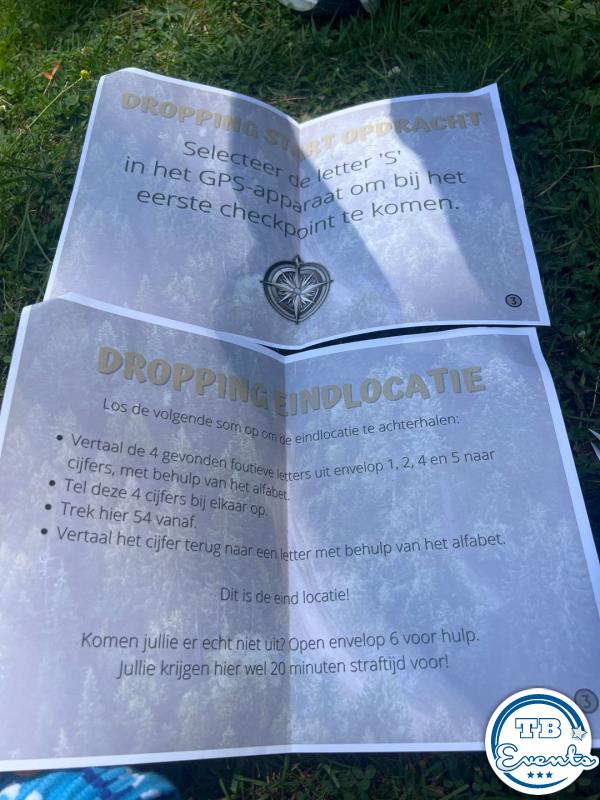 DROPPING START OPDRACHT
Selecteer de letter 'S'
in het GPS-apparaat om bij het
eerste checkpoint te komen.
3
DROPPING EINDLOCATIE
Los de volgende som op om de eindlocatie te achterhalen:
• Vertaal de 4 gevonden foutieve letters uit envelop 1, 2, 4 en 5 naar
cijfers, met behulp van het alfabet.
• Tel deze 4 cijfers bij elkaar op.
• Trek hier 54 vanaf.
• Vertaal het cijfer terug naar een letter met behulp van het alfabet.
Dit is de eind locatie!
Komen jullie er echt niet uit? Open envelop 6 voor hulp.
Jullie krijgen hier wel 20 minuten straftijd voor!
3
TB
Events